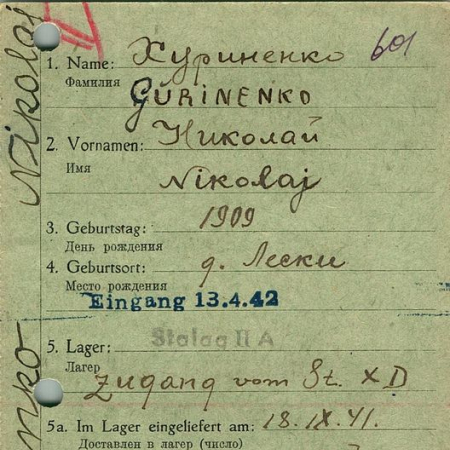 1. Name: Хуриненко 601
Фамилия
GURINENKO
2. Vornamen: Николай
Имя
Nikolaj
3. Geburtstag: 1909
День рождения
4. Geburtsort: д. Лески
Место рождения
Eingang 13.4.42
Stalag II A
5. Lager:
Лагерь
Zugang vom St. X D
5a. Im Lager eingeliefert am: 18.IX.41.
Доставлен в лагерь (число)
Nikolaj
nko